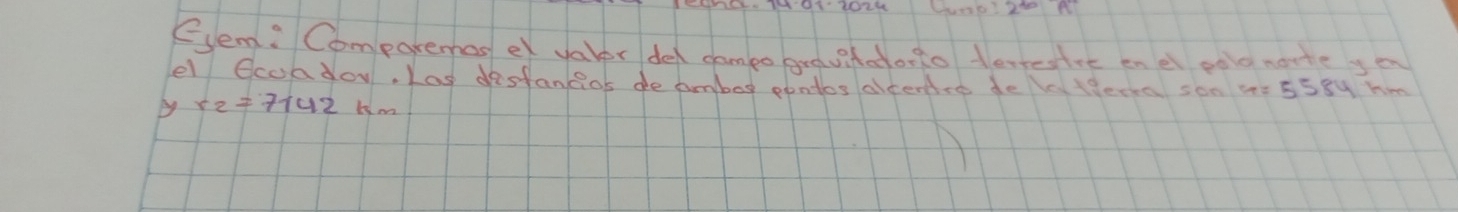 Fecha. 14.01.2024 Grupo: 2do "A"
Ejem: Comparemos el valor del campo gravitatorio terrestre en el polo norte y en
el Ecuador. Las distancias de ambos puntos al centro de la tierra son r1= 5584 km
y r2 = 7142 km